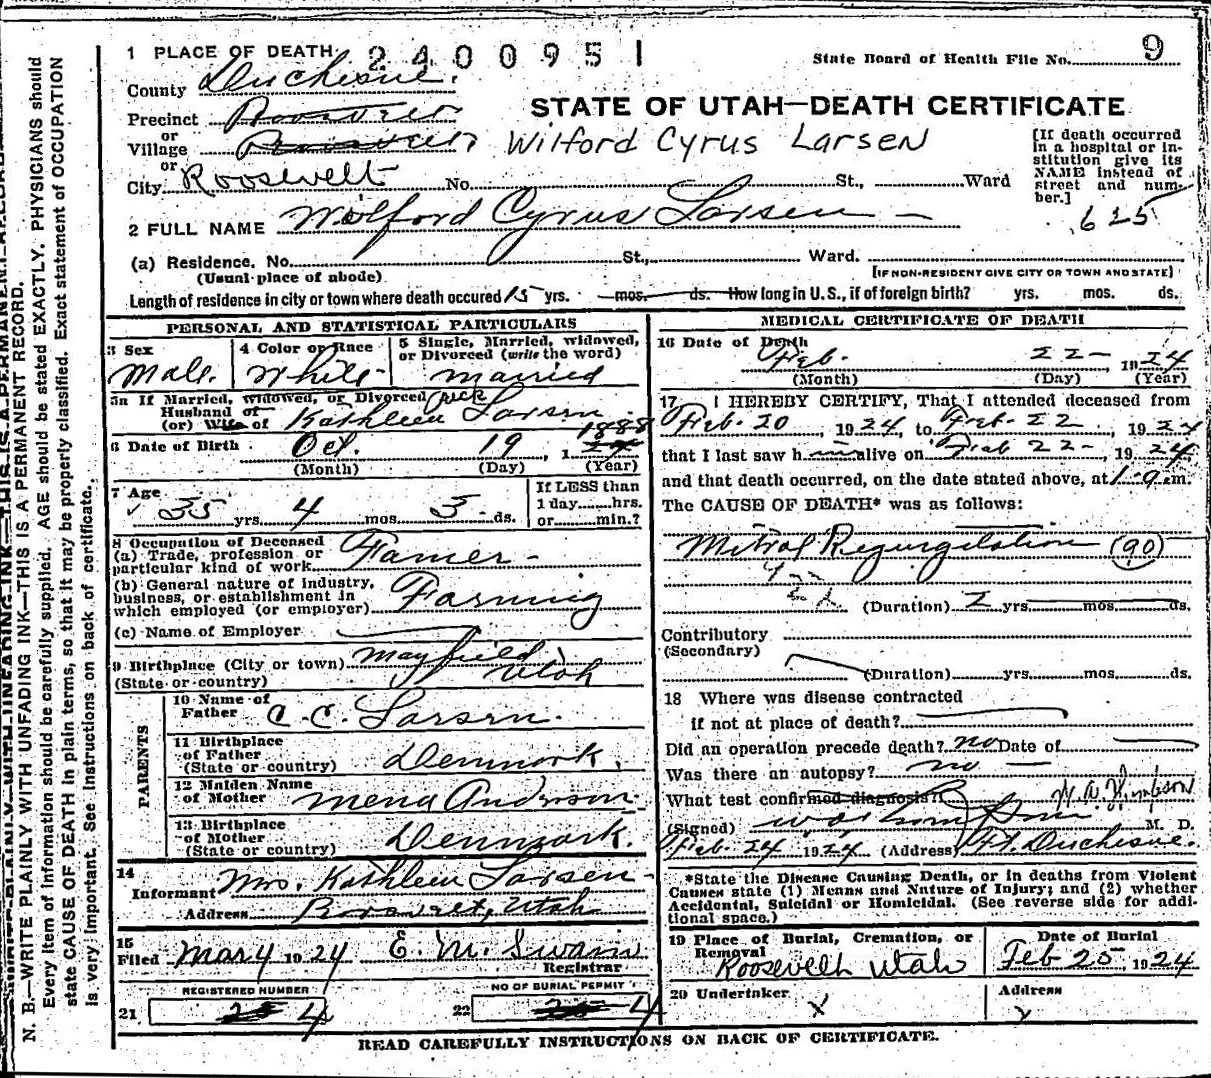 N. B.—WRITE PLAINLY WITH UNFADING INK—THIS IS A PERMANENT RECORD.
Every item of information should be carefully supplied. AGE should be stated EXACTLY. PHYSICIANS should
state CAUSE OF DEATH in plain terms, so that it may be properly classified. Exact statement of OCCUPATION
is very important. See instructions on back of certificate.
1 PLACE OF DEATH 2400951 State Board of Health File No. 9
County Duchesne.
Precinct Roosevelt
STATE OF UTAH—DEATH CERTIFICATE
or
Village Roosevelt Wilford Cyrus Larsen
or
City Roosevelt No. St., Ward
[If death occurred
in a hospital or in-
stitution give its
NAME instead of
street and num-
ber.]
625
2 FULL NAME Wilford Cyrus Larsen
(a) Residence. No. St., Ward.
(Usual place of abode) [IF NON-RESIDENT GIVE CITY OR TOWN AND STATE]
Length of residence in city or town where death occured 15 yrs. mos. ds. How long in U. S., if of foreign birth? yrs. mos. ds.
PERSONAL AND STATISTICAL PARTICULARS
3 Sex
Male.
4 Color or Race
White
5 Single, Married, widowed,
or Divorced (write the word)
Married
5a If Married, widowed, or Divorced
Husband of
(or) Wife of Kathleen Larsen
6 Date of Birth Oct. 19, 1888
(Month) (Day) (Year)
7 Age
35 yrs. 4 mos. 3 ds.
If LESS than
1 day......hrs.
or......min.?
8 Occupation of Deceased
(a) Trade, profession or
particular kind of work Famer
(b) General nature of industry,
business, or establishment in
which employed (or employer) Farming
(c) Name of Employer
9 Birthplace (City or town) Mayfield
(State or country) Utah
PARENTS
10 Name of
Father C. C. Larsen.
11 Birthplace
of Father
(State or country) Denmark.
12 Maiden Name
of Mother Mena Anderson.
13 Birthplace
of Mother
(State or country) Denmark.
14
Informant Mrs. Kathleen Larsen
Address Roosevelt, Utah
15
Filed Mar 4 1924 E. M. Swain
Registrar
REGISTERED NUMBER
21 4
NO OF BURIAL PERMIT
22 4
MEDICAL CERTIFICATE OF DEATH
16 Date of Death
Feb. 22- 1924
(Month) (Day) (Year)
17 I HEREBY CERTIFY, That I attended deceased from
Feb. 20, 1924, to Feb. 22, 1924
that I last saw h im alive on Feb 22-, 1924
and that death occurred, on the date stated above, at 1-9 m.
The CAUSE OF DEATH* was as follows:
Mitral Regurgitation (90)
(Duration) 2 yrs. mos. ds.
Contributory
(Secondary)
(Duration) yrs. mos. ds.
18 Where was disease contracted
if not at place of death?
Did an operation precede death? no Date of
Was there an autopsy? no
What test confirmed diagnosis?
(Signed) M. D.
Feb. 24 1924 (Address) Ft. Duchesne.
*State the Disease Causing Death, or in deaths from Violent
Causes state (1) Means and Nature of Injury; and (2) whether
Accidental, Suicidal or Homicidal. (See reverse side for addi-
tional space.)
19 Place of Burial, Cremation, or
Removal
Roosevelt Utah
Date of Burial
Feb 25, 1924
20 Undertaker
X
Address
X
READ CAREFULLY INSTRUCTIONS ON BACK OF CERTIFICATE.